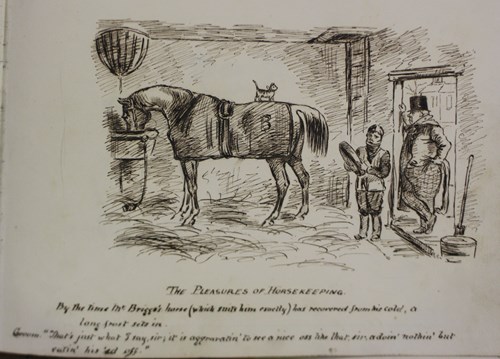 The Pleasures of Horsekeeping.
By the time Mr Briggs's horse (which suits him exactly) has recovered from his cold, a
long frost sets in.
Groom. "That's just what I say, sir; it is aggravatin' to see a nice oss like that, sir, adoin' nothin' but
eatin' his 'ed off."
B